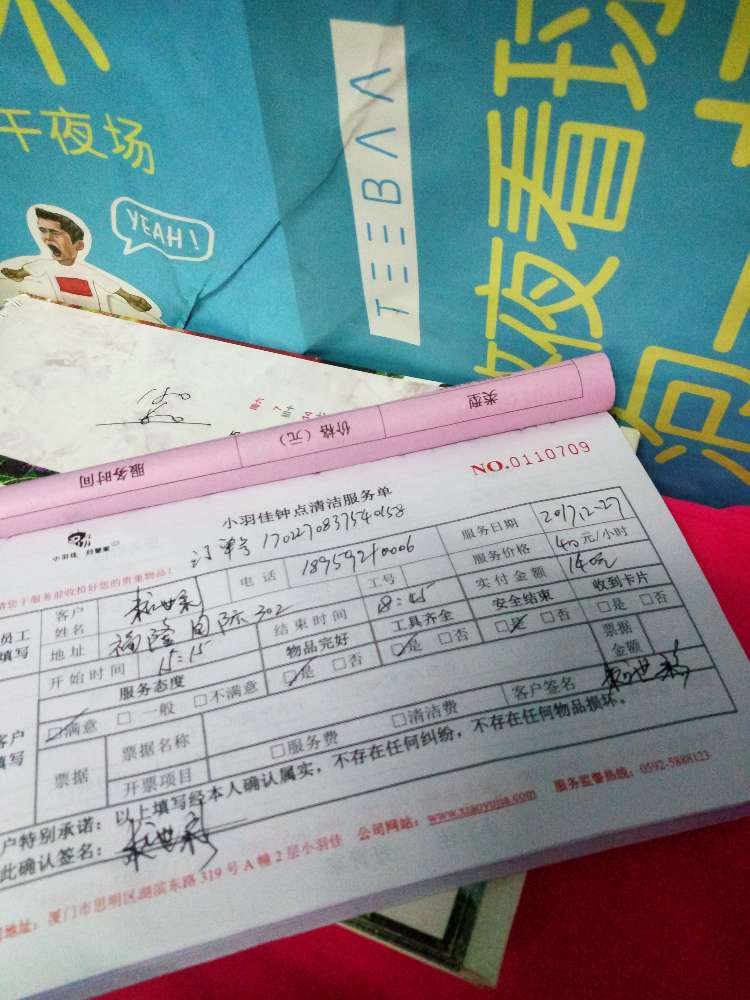 午夜场
YEAH!
TEEBAA
夜看球
类型
价格（元）
服务时间
NO.0110709
小羽佳钟点清洁服务单
小羽佳
订单号 1702270837540158
请您于服务前收拾好您的贵重物品！
服务日期 2017.2-27
客户姓名
电话 18959210006
服务价格 40元/小时
员工填写
地址 福隆国际302
工号
实付金额 140元
收到卡片
开始时间 15:15
结束时间 18:45
安全结束
□是 □否
服务态度
物品完好
工具齐全
□是 □否
□是 □否
□是 □否
客户填写
□满意 □一般 □不满意
票据金额
票据
票据名称
客户签名
开票项目
□服务费
□清洁费
户特别承诺：以上填写经本人确认属实，不存在任何纠纷，不存在任何物品损坏。
此确认签名：
地址：厦门市思明区湖滨东路319号A幢2层小羽佳 公司网站：www.xiaoyujia.com 服务监督热线：0592-5888123